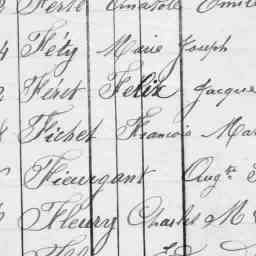 Ferté Anatole Emile
4 Féty Marie Joseph
Féret Felix Jacque
Fichet Francois Mar
Fieurgant Augte
Fleury Charles M